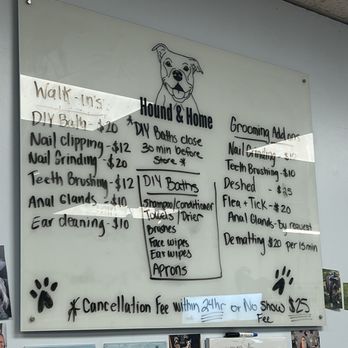 Hound & Home
Walk-ins
DIY Bath - $20
Nail clipping - $12
Nail Grinding - $20
Teeth Brushing - $12
Anal Glands - $10
Ear cleaning - $10
*DIY Baths close
30 min before
Store *
DIY Baths
Shampoo/conditioner
Towels / Drier
Brushes
Face wipes
Ear wipes
Aprons
Grooming Add ons
Nail Grinding -
Teeth Brushing - $10
Deshed - $25
Flea + Tick - $20
Anal Glands - by request
Dematting $20 per 15 min
* Cancellation Fee within 24hr or No Show $25
Fee